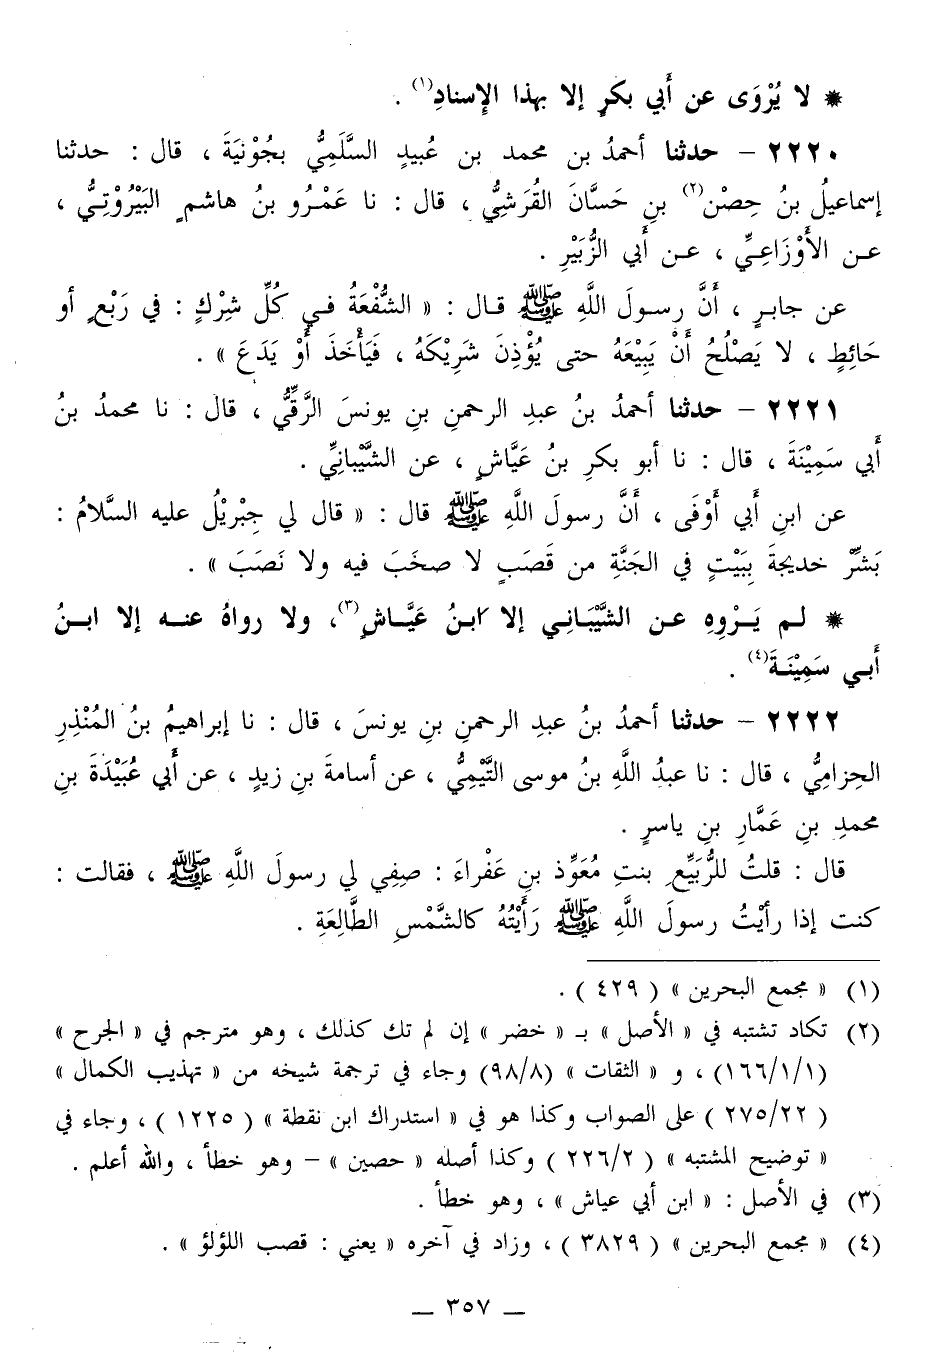 * لا يُرْوَى عن أَبي بكرٍ إلا بهذا الإِسنادِ(١) .
٢٢٢٠ - حدثنا أحمدُ بن محمد بن عُبيدٍ السَّلَمِيُّ بجُوْنيَةَ ، قال : حدثنا
إسماعيلُ بنُ حِصْن(٢) بنِ حَسَّانَ القُرَشِيُّ ، قال : نا عَمْرُو بنُ هاشمٍ البَيْرُوْتِيُّ ،
عن الأَوْزَاعِيِّ ، عن أَبي الزُّبَيْرِ .
عن جابرٍ ، أَنَّ رسولَ اللَّهِ ﷺ قال : « الشُّفْعَةُ في كُلِّ شِرْكٍ : في رَبْعٍ أو
حَائِطٍ ، لا يَصْلُحُ أَنْ يَبِيْعَهُ حتى يُؤْذِنَ شَرِيْكَهُ ، فَيَأْخَذَ أَوْ يَدَعَ » .
٢٢٢١ - حدثنا أحمدُ بنُ عبدِ الرحمنِ بنِ يونسَ الرَّقِّيُّ ، قال : نا محمدُ بنُ
أَبي سَمِيْنَةَ ، قال : نا أبو بكرِ بنُ عَيَّاشٍ ، عن الشَّيْبانِيِّ .
عن ابنِ أَبي أَوْفَى ، أَنَّ رسولَ اللَّهِ ﷺ قال : « قال لي جِبْرِيْلُ عليه السَّلامُ :
بَشِّرْ خديجةَ بِبَيْتٍ في الجَنَّةِ من قَصَبٍ لا صخَبَ فيه ولا نَصَبَ » .
* لم يَرْوِهِ عن الشَّيْبَانِي إلا ابنُ عَيَّاشٍ(٣)، ولا رواهُ عنه إلا ابنُ
أَبي سَمِيْنَةَ(٤) .
٢٢٢٢ - حدثنا أحمدُ بنُ عبدِ الرحمنِ بنِ يونسَ ، قال : نا إبراهيمُ بنُ المُنْذِرِ
الحِزامِيُّ ، قال : نا عبدُ اللَّهِ بنُ موسى التَّيْمِيُّ ، عن أسامةَ بنِ زيدٍ ، عن أَبي عُبَيْدَةَ بنِ
محمدِ بنِ عَمَّارِ بنِ ياسرٍ .
قال : قلتُ للرُّبَيِّعِ بنتِ مُعَوِّذ بنِ عَفْراءَ : صِفِي لي رسولَ اللَّهِ ﷺ ، فقالت :
كنت إذا رأيْتُ رسولَ اللَّهِ ﷺ رَأَيْتُهُ كالشَّمْسِ الطَّالِعَةِ .
(١) « مجمع البحرين » ( ٤٢٩ ) .
(٢) تكاد تشتبه في « الأصل » بـ « خضر » إن لم تك كذلك ، وهو مترجم في « الجرح »
(١٦٦/١/١) ، و « الثقات » (٩٨/٨) وجاء في ترجمة شيخه من « تهذيب الكمال »
( ٢٧٥/٢٢ ) على الصواب وكذا هو في « استدراك ابن نقطة » ( ١٢٢٥ ) ، وجاء في
« توضيح المشتبه » ( ٢٢٦/٢ ) وكذا أصله « حصين » – وهو خطأ ، والله أعلم .
(٣) في الأصل : « ابن أبي عياش » ، وهو خطأ .
(٤) « مجمع البحرين » ( ٣٨٢٩ ) ، وزاد في آخره « يعني : قصب اللؤلؤ » .
— ٣٥٧ —